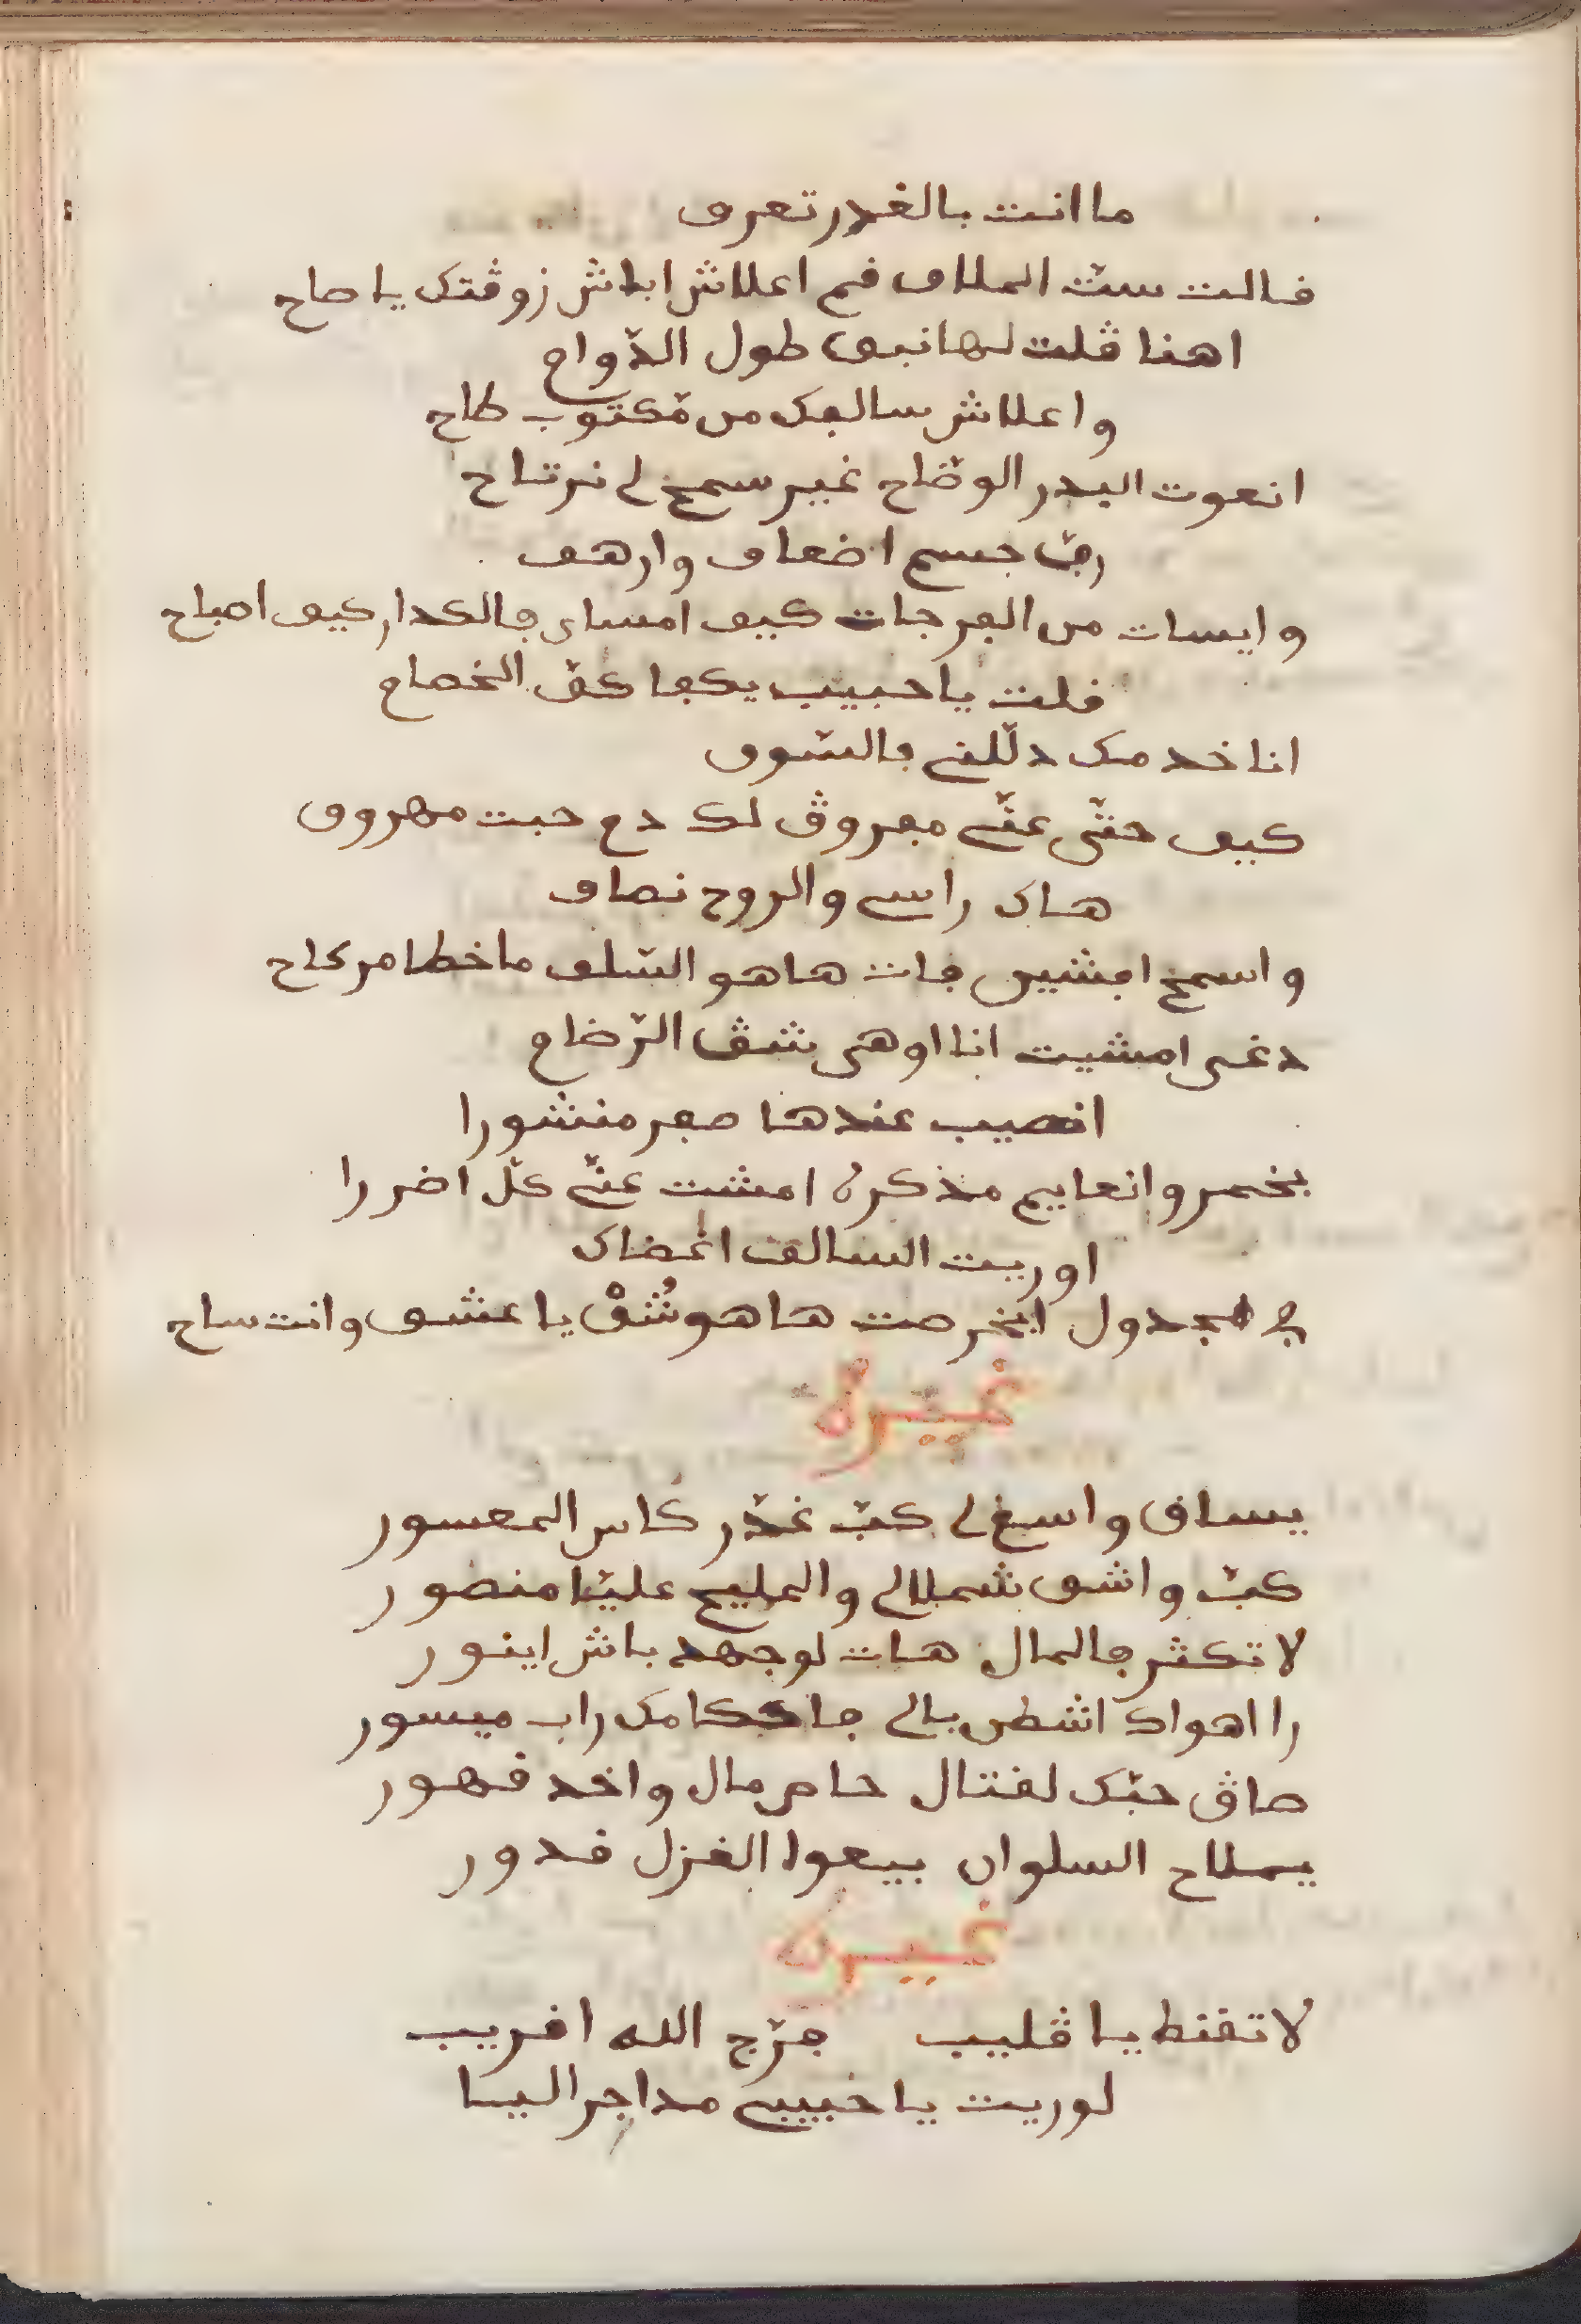 ما انت بالغدر تعرف
فالت ستّ الملاف فم اعلاش اباش زوڨتک يا صاح
اهنا ڨلت لها نبغى طول الدّواح
واعلاش سالبک من مکتوب طاح
انعوت البدر الوضّاح غير سمح لي نرتاح
جسم اضعاف وارهف
وايسات من البرجات کيف امساى بالکدار کيف اصباح
فلت يا حبيب يکبا کفّ الخصاح
انا خدمک دلّلني بالسّوق
کيف حتّى عنّي معروڨ لک دم حبت مهروق
هاک راسي والروح نصاف
واسمح امشين جات هاهو السّلف ما خطا مرکاح
دغى امشيت انا اوهى شڨ الرّضاح
انصيب عندها صبر منشورا
بخمر وانعايم مذکره امشت عنّي کلّ اضررا
اوريت السالف اغضاک
جدول ابخرصت هاهو شُفْ يا عشق وانت ساح
غيره
يساق واسغ لي کبّ غدّر کاس المعسور
کبّ واشق شملالي والمليح عليّا منصور
لا تکثر بالمال هات لوجهد باش اينور
را اهواک اشطن بالي جا حکامک راب ميسور
صاڨ حبّک لفتال حاص مال واخد فهور
يملاح السلوان بيعوا الغزل فدور
غيره
لا تفنط يا ڨليب فرّج الله افريب
لوريت يا حبيبي مداجر اليا